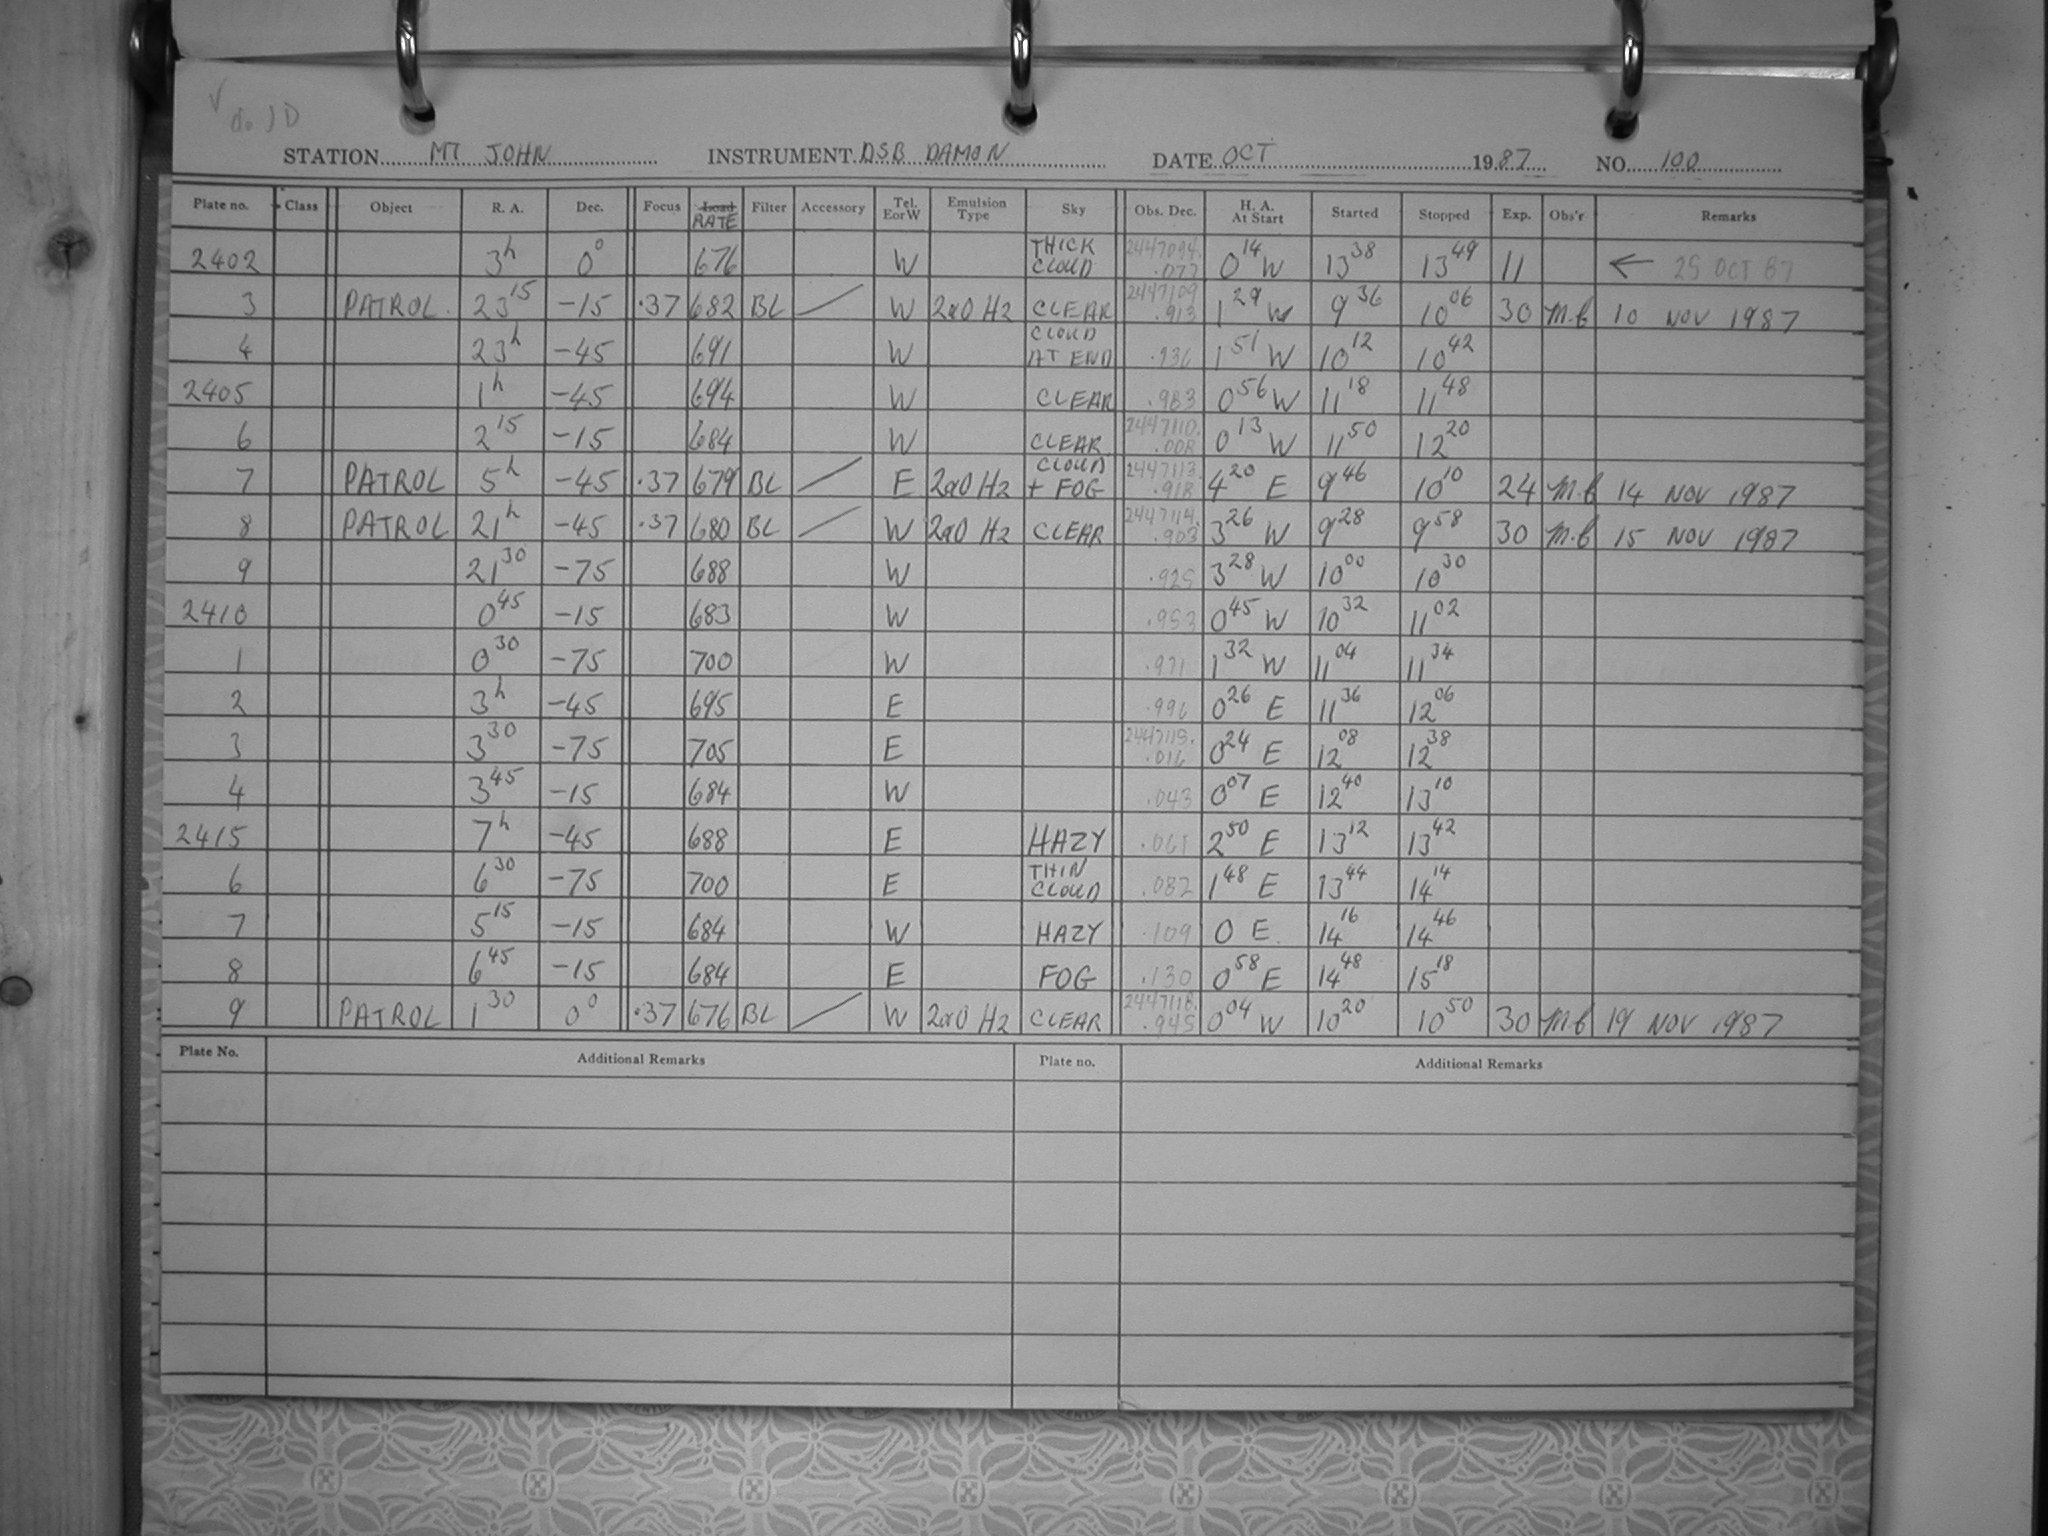 √ do JD
STATION MT JOHN INSTRUMENT DSB DAMON DATE OCT 1987 NO. 100
Plate no. Class Object R. A. Dec. Focus Load RATE Filter Accessory Tel. E or W Emulsion Type Sky Obs. Dec. H. A. At Start Started Stopped Exp. Obs'r Remarks
2402 3h 0° 676 W THICK CLOUD 2447094.077 0 14 W 13 38 13 49 11 ← 25 OCT 87
3 PATROL 23 15 -15 .37 682 BL / W 2a0 H2 CLEAR 2447109.913 1 29 W 9 36 10 06 30 M.B 10 NOV 1987
4 23h -45 691 W CLOUD AT END .936 1 51 W 10 12 10 42
2405 1h -45 694 W CLEAR .983 0 56 W 11 18 11 48
6 2 15 -15 684 W CLEAR 2447110.008 0 13 W 11 50 12 20
7 PATROL 5h -45 .37 679 BL / E 2a0 H2 CLOUD + FOG 2447113.918 4 20 E 9 46 10 10 24 M.B 14 NOV 1987
8 PATROL 21h -45 .37 680 BL / W 2a0 H2 CLEAR 2447114.903 3 26 W 9 28 9 58 30 M.B 15 NOV 1987
9 21 30 -75 688 W .925 3 28 W 10 00 10 30
2410 0 45 -15 683 W .953 0 45 W 10 32 11 02
1 0 30 -75 700 W .971 1 32 W 11 04 11 34
2 3h -45 695 E .996 0 26 E 11 36 12 06
3 3 30 -75 705 E 2447115.016 0 24 E 12 08 12 38
4 3 45 -15 684 W .043 0 07 E 12 40 13 10
2415 7h -45 688 E HAZY .061 2 50 E 13 12 13 42
6 6 30 -75 700 E THIN CLOUD .082 1 48 E 13 44 14 14
7 5 15 -15 684 W HAZY .109 0 E 14 16 14 46
8 6 45 -15 684 E FOG .130 0 58 E 14 48 15 18
9 PATROL 1 30 0° .37 676 BL / W 2a0 H2 CLEAR 2447118.945 0 04 W 10 20 10 50 30 M.B 19 NOV 1987
Plate No. Additional Remarks Plate no. Additional Remarks